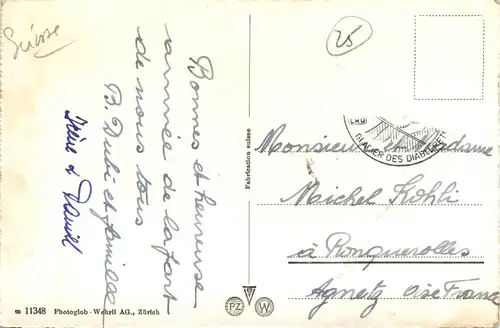 Suisse
25
Bonnes et heureuse
année de la part
de nous tous
B. Dubi et famille
Irène & Daniel
Fabrication suisse
GLACIER DES DIABLERETS
Monsieur et Madame
Michel Kohli
à Ronquerolles
Agnetz Oise France
11348 Photoglob-Wehrli AG., Zürich
PZ W